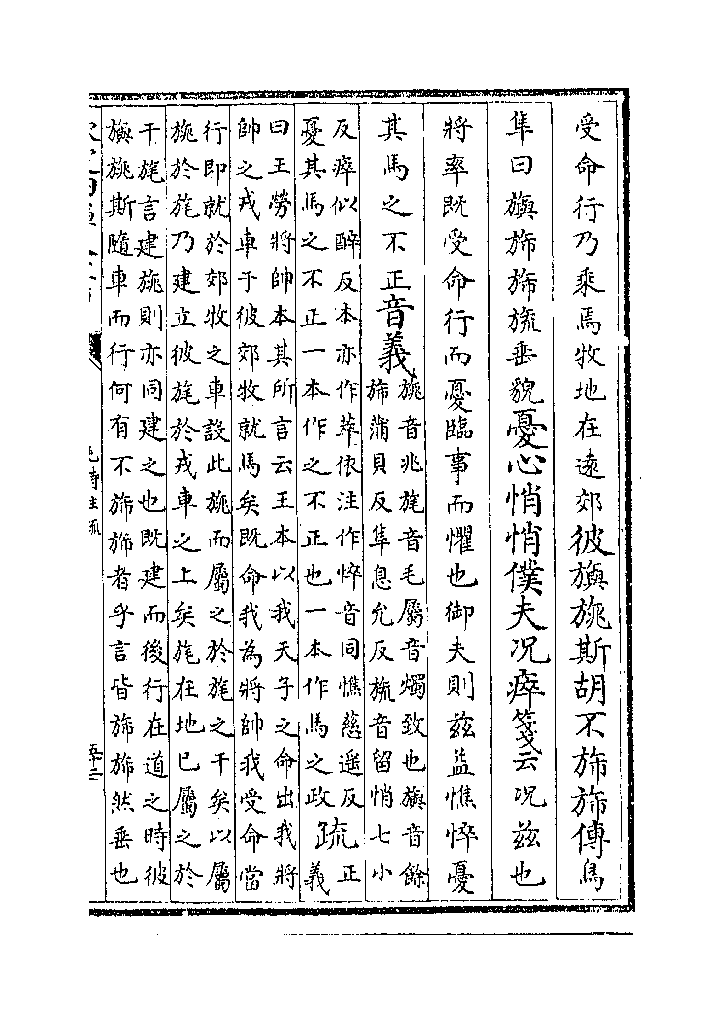 受命行乃乘焉牧地在遠郊彼旟旐斯胡不旆旆傳鳥
隼曰旟旆旆旒垂貌憂心悄悄僕夫况瘁箋云况兹也
將率既受命行而憂臨事而懼也御夫則兹益憔悴憂
其馬之不正音義
旐音兆旄音毛屬音燭致也旟音餘
旆蒲貝反隼息允反旒音留悄七小
反瘁似醉反本亦作萃依注作悴音同憔慈遥反
憂其馬之不正一本作之不正也一本作馬之政
疏
正
義
曰王勞將帥本其所言云王本以我天子之命出我將
帥之戎車于彼郊牧就馬矣既命我為將帥我受命當
行即就於郊牧之車設此旐而屬之於旄之干矣以屬
旐於旄乃建立彼旄於戎車之上矣旄在地已屬之於
干旄言建旐則亦同建之也既建而後行在道之時彼
旟旐斯隨車而行何有不旆旆者乎言皆旆旆然垂也
毛詩注疏